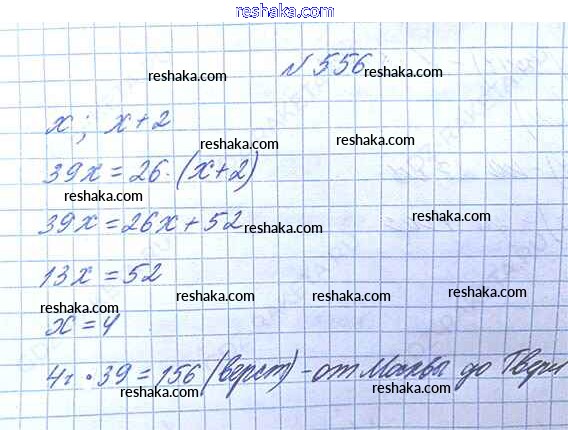 reshaka.com
N 556
reshaka.com reshaka.com
x; x+2
39x = 26·(x+2)
reshaka.com
reshaka.com
39x = 26x + 52
reshaka.com
13x = 52
reshaka.com reshaka.com
reshaka.com
x = 4
reshaka.com reshaka.com
4 · 39 = 156 (верст) - от Москвы до Твери
reshaka.com
reshaka.com